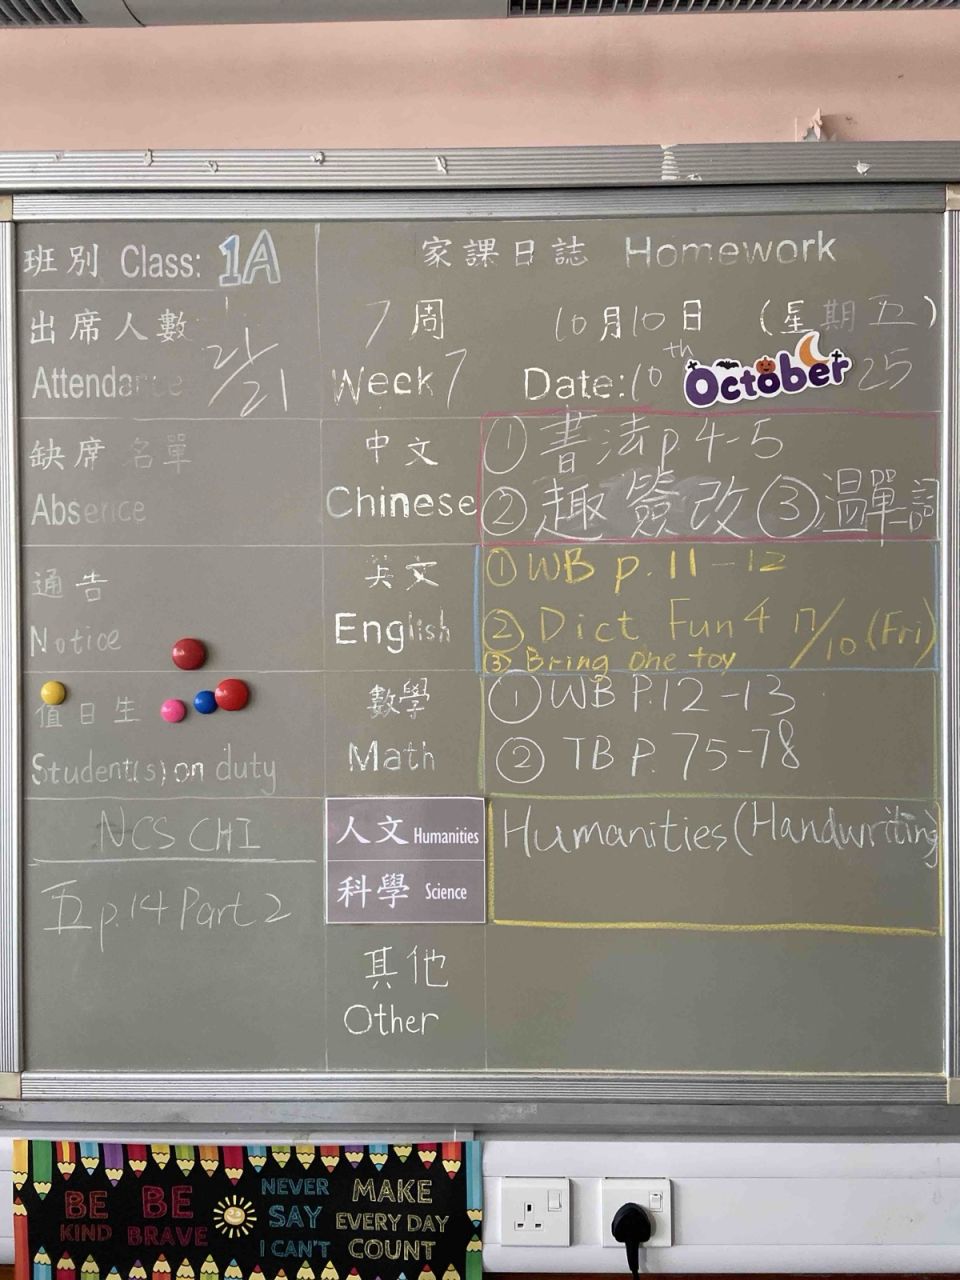 班別 Class: 1A
家課日誌 Homework
出席人數
Attendance
21/21
7周
Week 7
10月10日 (星期五)
Date: 10th October 25
缺席名單
Absence
中文
Chinese
① 書法p.4-5
② 趣簽改 ③ 溫單詞
通告
Notice
英文
English
① WB p.11-12
② Dict Fun 4 17/10 (Fri)
③ Bring one toy
值日生
Student(s) on duty
數學
Math
① WB P.12-13
② TB P. 75-78
NCS CHI
五p.14 Part 2
人文 Humanities
科學 Science
Humanities (Handwriting)
其他
Other
BE KIND
BE BRAVE
NEVER SAY I CAN'T
MAKE EVERY DAY COUNT